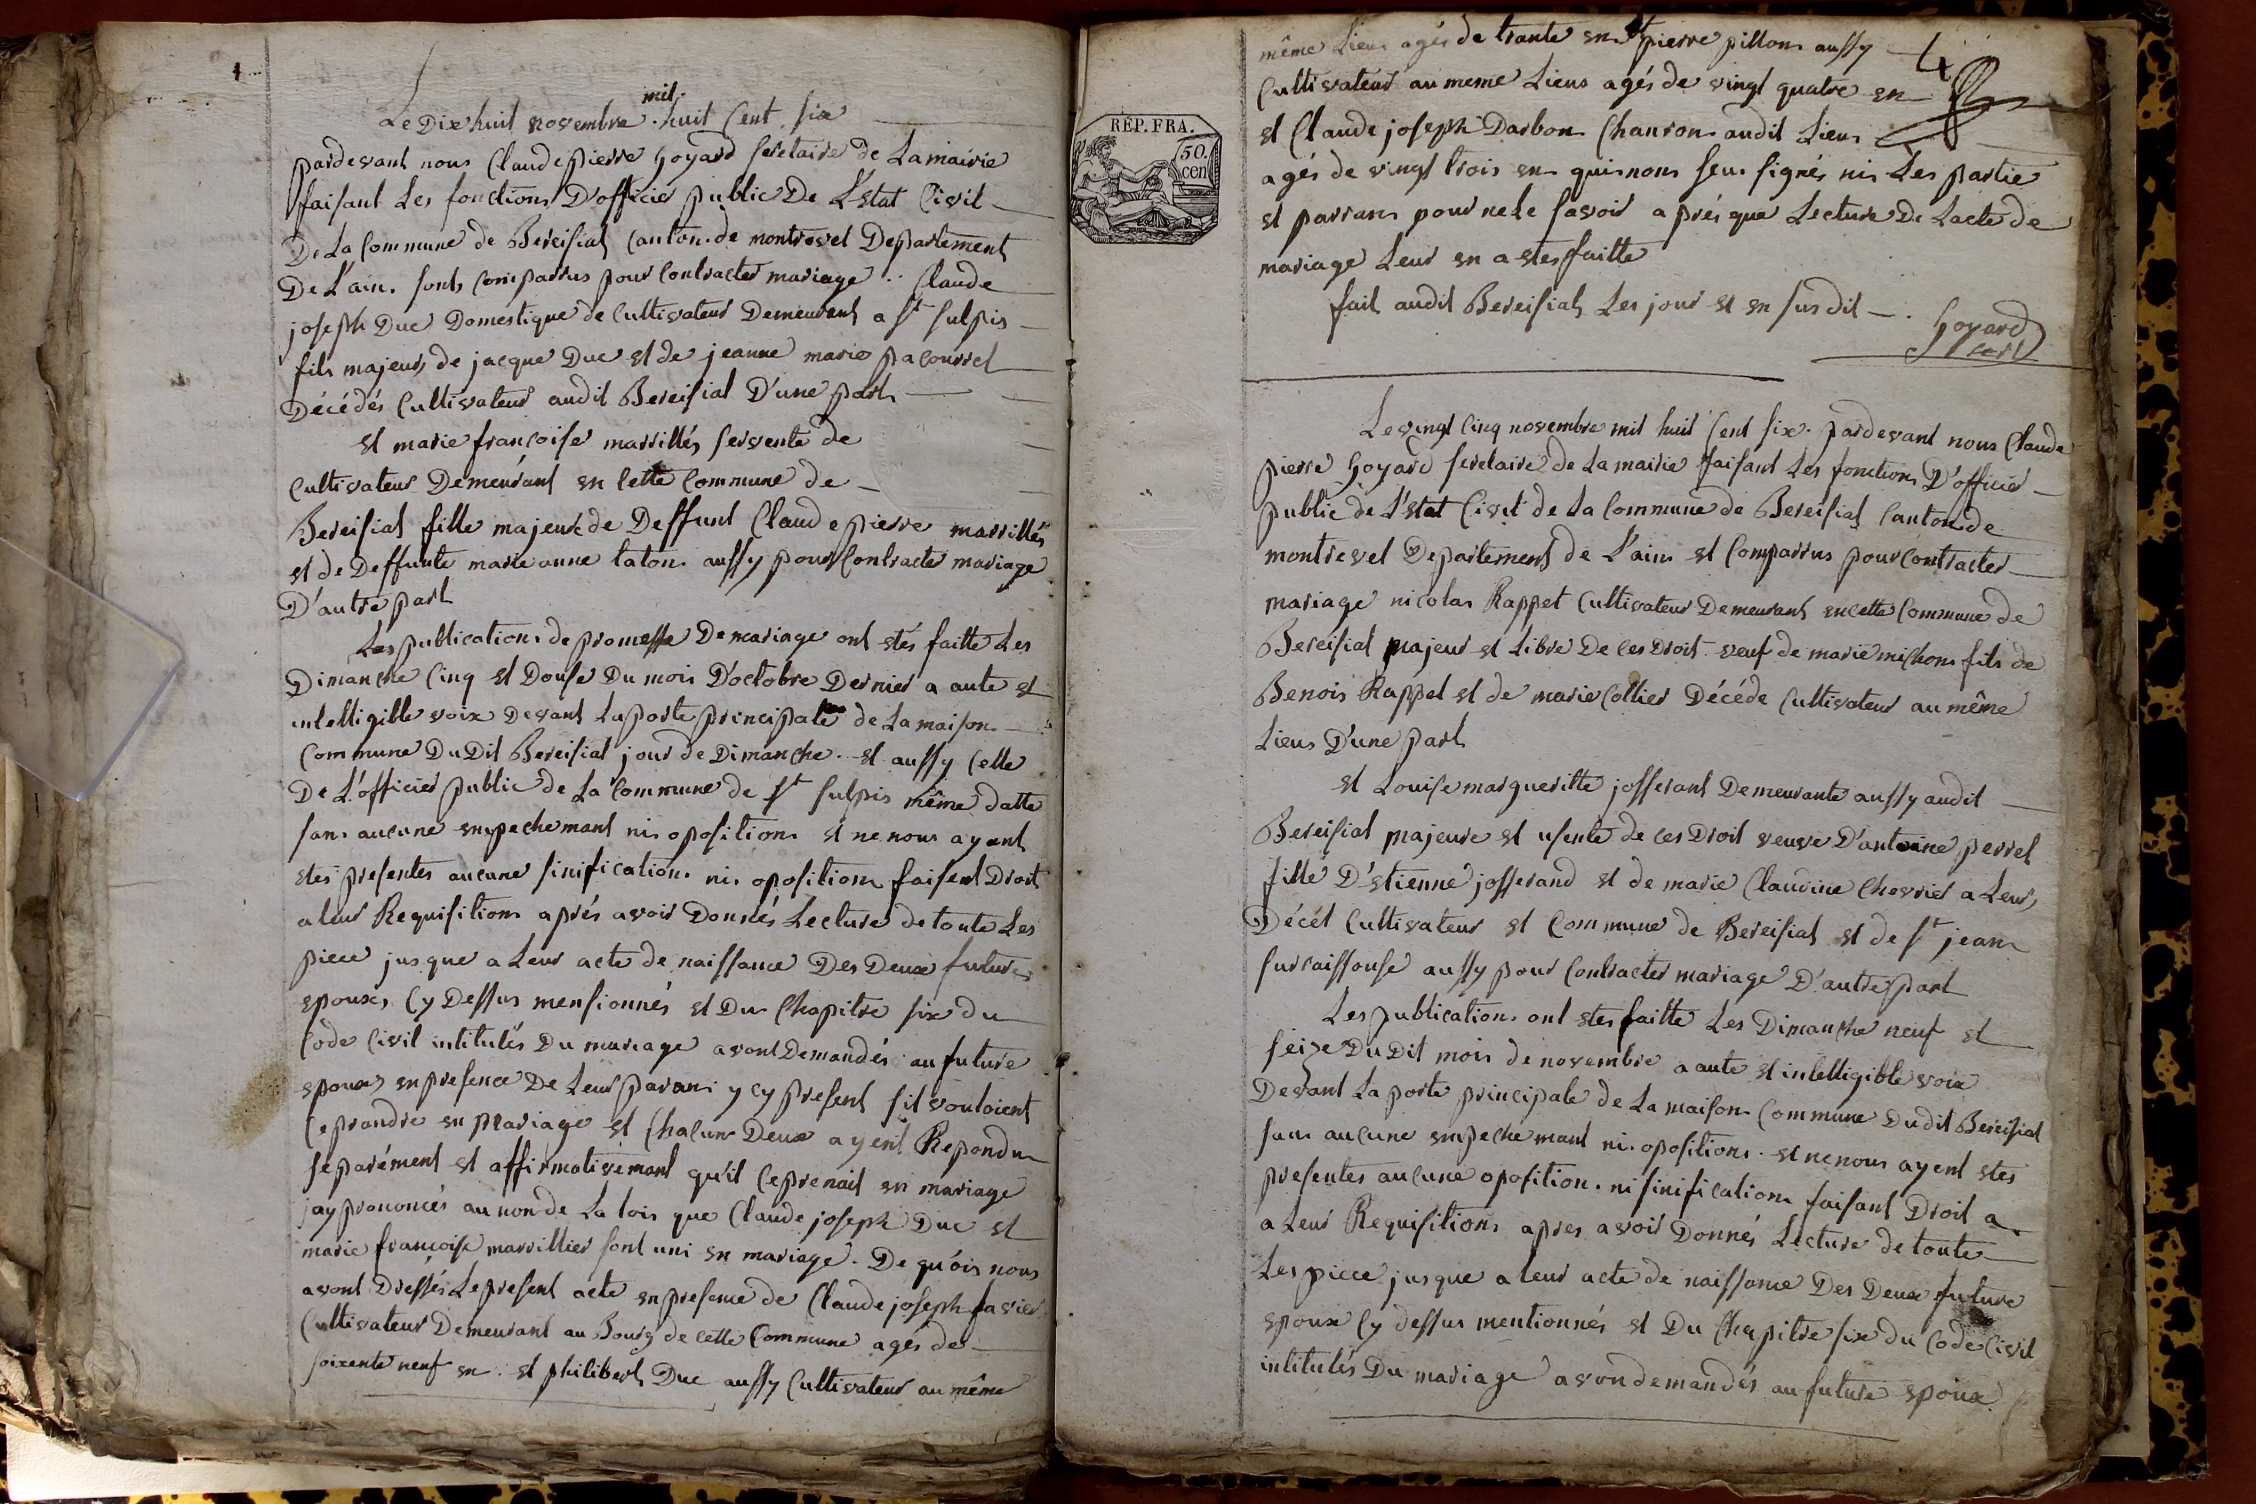 Le Dix huit novembre mil huit Cent six
pardevant nous Claude pierre Goyard secretaire de La mairie
faisant Les fonctions D'officier public De L'Etat Civil
De La Commune de Bereisiat Canton de montrevel Departement
De L'ain. sonts comparrus pour Contracter mariage Claude
joseph Duc Domestique de Cultivateur Demeurant a St sulpis
fils majeur de jacque Duc et de jeanne marie pacourret
Décédés Cultivateur audit Bereisiat D'une part
et marie françoise marrillés servente de
Cultivateur Demeurant en Cette Commune de
Bereisiat fille majeure de Deffunt Claude pierre marrillés
et de Deffunte marie anne taton aussy pour Contracter mariage
D'autre part
Les publications de promesse De mariage ont etés faitte Les
Dimanche Cinq et Douse Du mois D'octobre Dernier a aute et
intelligible voix Devant La porte principale de La maison
Commune Du Dit Bereisiat jour de Dimanche. et aussy Celle
De L'officier public de La Commune de St sulpis même datte
sans aucune empechemant ni opositions et ne nous ayant
etes presentes aucune sinification ni oposition faisent Droit
a leur Requisition aprés avoir Donnés Lecture de toute Les
piece jusque a Leur acte de naissance Des Deux futures
epoux Cy Dessus mensionnés et Du Chapitre six du
Code Civil intitulés Du mariage avont Demandés au future
epoux en presence De Leur parans y cy present sil vouloient
Ceprandre en mariage et Chacun Deux ayent Repondu
separément et affirmativemant qu'il Ceprenait en mariage
jay prononcés au non de La lois que Claude joseph Duc et
marie françoise marrillier sont uni en mariage. De quoi nous
avont Dressés Le present acte en presence de Claude joseph favier
Cultivateur Demeurant au Bourg de cette Commune agés de
soixente neuf en et philibert Duc aussy Cultivateur au même
même Lieu agés de trante en et pierre pillon aussy
Cultivateur au meme Lieus agés de vingt quatre en
et Claude joseph Darbon Charron audit Lieu
agés de vingt trois en qui nons seu signés ni Les partie
et parrans pour ne Le savoir aprés que Lecture De Lacte de
mariage Leur en a etes faitte
fait audit Bereisiat Les jour et en susdit
Goyard
secre
4
RÉP. FRA.
50.
cen
Le vingt Cinq novembre mil huit Cent six. pardevant nous Claude
pierre Goyard secretaire de La mairie faisant Les fonctions D'officier
public de L'Etat Civil de La Commune de Bereisiat Canton de
montrevel Departement de L'ain et Comparrus pour Contracter
mariage nicolas Rappet Cultivateur Demeurant en cette Commune de
Bereisiat majeur et Libre De ces Droit veuf de marie michon fils de
Benois Rappet et de marie Collier Décéde Cultivateur au même
Lieus D'une part
et Louise margueritte josserant Demeurante aussy audit
Bereisiat majeure et usente de ces Droit veuve D'antoine perret
fille D'etienne josserand et de marie Claudine Chevrier a Leur
Décét Cultivateur et Commune de Bereisiat et de St jean
surraissouse aussy pour Contracter mariage D'autre part
Les publications ont etes faitte Les Dimanche neuf et
seize Du Dit mois de novembre a aute et intelligible voix
Devant La porte principale de La maison Commune Du dit Bereisiat
sans aucune empechemant ni opositions. et ne nous ayent etes
presentes aucune oposition. ni sinification faisant Droit a
a Leur Requisitions apres avoir Donnés Lecture de toute
Les piece jusque a leur acte de naissance Des Deux future
epoux Cy dessus mentionnés et Du Chapitre six du Code Civil
intitulés Du mariage avon demandés au future epoux